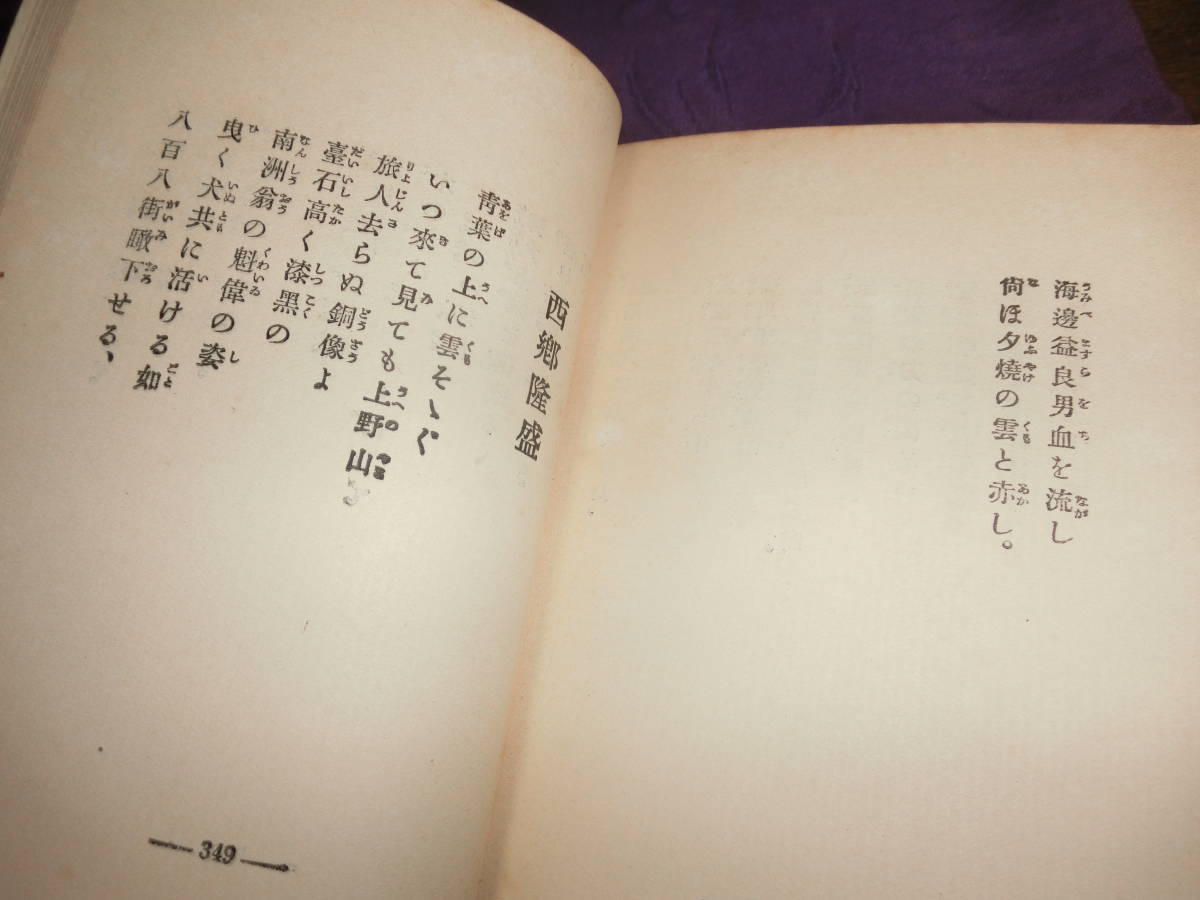 海邊益良男血を流し
尙ほ夕燒の雲と赤し。
西鄕隆盛
靑葉の上に雲そゝぐ
いつ來て見ても上野山
旅人去らぬ銅像よ
臺石高く漆黑の
南洲翁の魁偉の姿
曳く犬共に活ける如
八百八街瞰下せる、
349